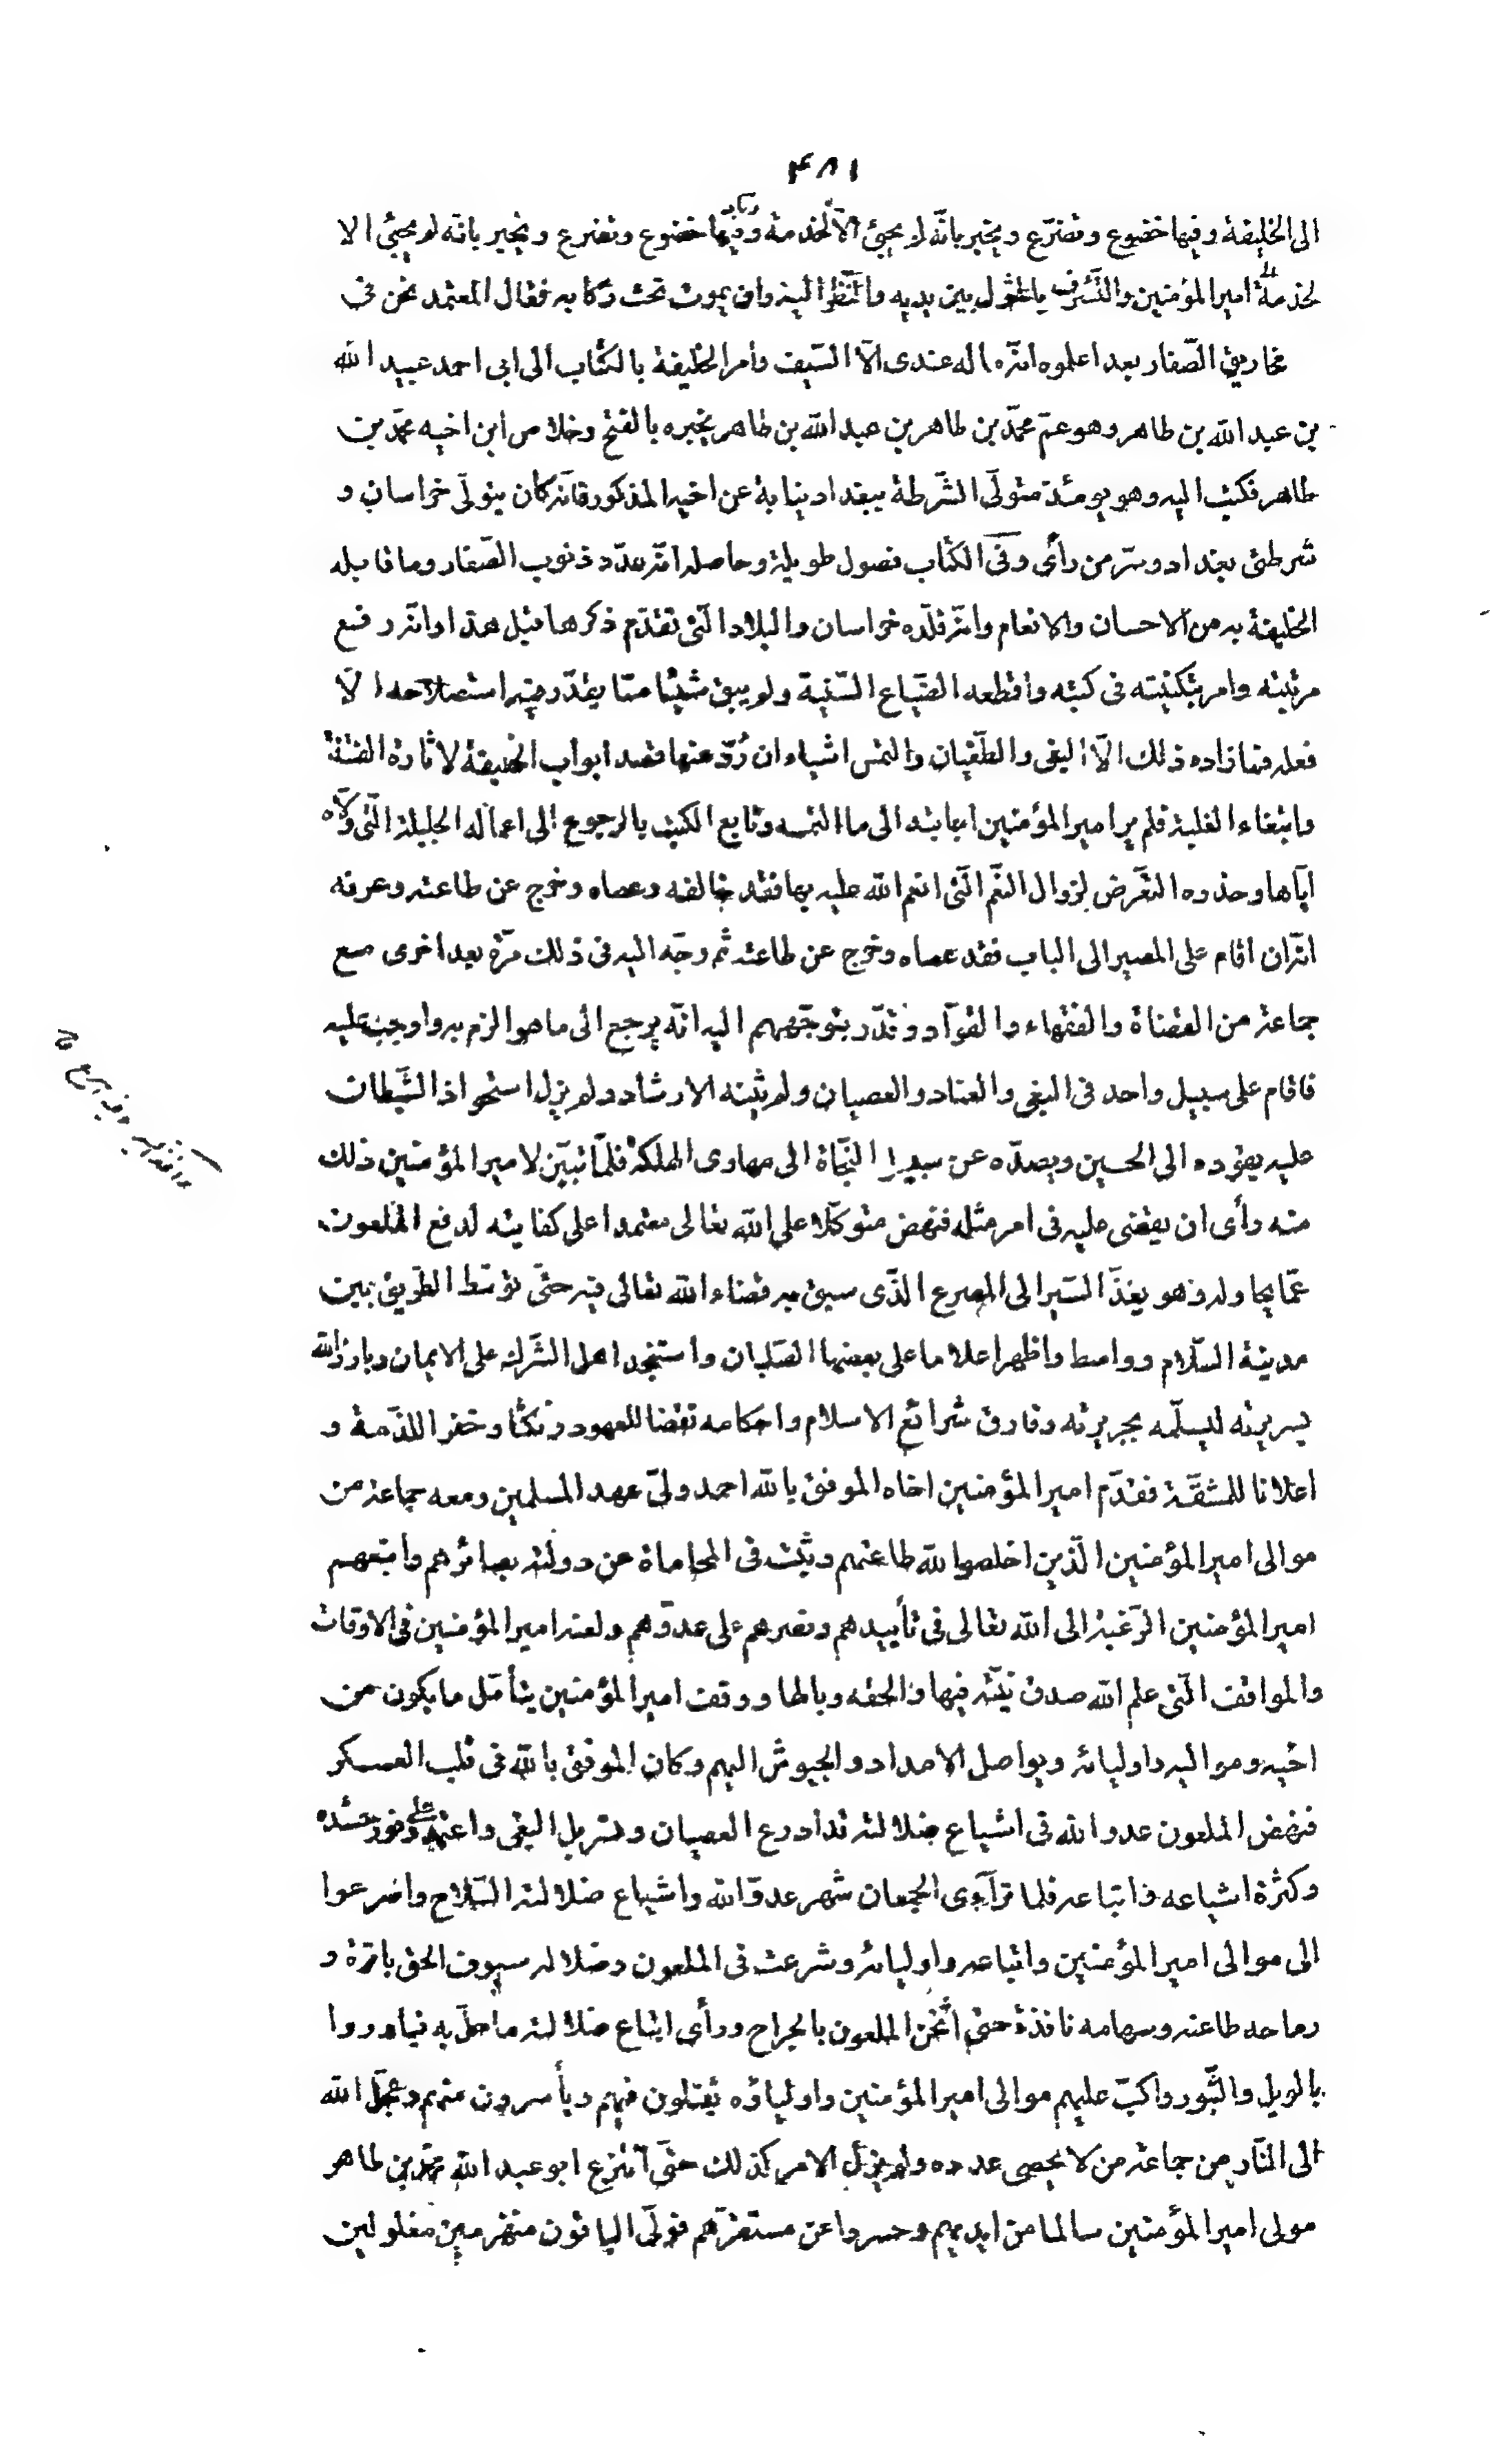 ۴۸۱
الى الخليفة وفيها خضوع وتضرّع ويخبر بانّه لم يجئ الّا لخدمة وفيها خضوع وتضرع ويخبر بانّه لم يجئ الا
لخدمة امير المؤمنين والتّشرّف بالمثول بين يديه والنّظر اليه وان يموت تحت ركابه فقال المعتمد نحن فى
مخاريق الصّفار بعد اعلموه انّه ماله عندى الّا السّيف وأمر الخليفة بالكتاب الى ابى احمد عبيد الله
بن عبد الله بن طاهر وهو عمّ محمّد بن طاهر بن عبد الله بن طاهر يخبره بالفتح وخلاص ابن اخيه محمّد بن
طاهر فكتب اليه وهو يومئذ متولّى الشّرطة ببغداد نيابة عن اخيه المذكور فانّه كان يتولّى خراسان و
شرطتى بغداد وسرّ من رأى وفى الكتاب فصول طويلة وحاصله انّه عدّد ذنوب الصّفار وما قابله
الخليفة به من الاحسان والانعام وانّه قلّده خراسان والبلاد الّتى تقدّم ذكرها قبل هذا وانّه رفع
مرتبته وامر بتكنيته فى كتبه واقطعه الضّياع السّنية ولم يبق شيئا ممّا يقدّر فيه استصلاحه الّا
فعله فما زاده ذلك الّا البغى والطّغيان والتمس اشياء ان رُدّ عنها قصد ابواب الخليفة لاثارة الفتنة
وابتغاء الغلبة فلم ير امير المؤمنين اجابته الى ما التمسه وتابع الكتب بالرجوع الى اعماله الجليلة الّتى ولّاه
ايّاها وحذره التعّرض لزوال النعّم الّتى انعم الله عليه بها فقد خالفه وعصاه وخرج عن طاعته وعرفه
انّه ان اقام على المصير الى الباب فقد عصاه وخرج عن طاعته ثم وجّه اليه فى ذلك مرّة بعد اخرى مع
جماعة من القضاة والفقهاء والقوّاد وقدّر بتوجّههم اليه انّه يرجع الى ما هو الزم به واوجب عليه
فاقام على سبيل واحد فى البغى والعناد والعصيان ولم يثنه الارشاد ولم يزل استحواذ الشّيطان
عليه يقوده الى الحسين ويصدّه عن سبيل النّجاة الى مهاوى الهلكة فلمّا تبيّن لامير المؤمنين ذلك
منه رأى ان يقضى عليه فى امر مثله فنهض متوكّلا على الله تعالى معتمدا على كفايته لدفع الملعون
عمّا يحاوله وهو يغذّ السّير الى المصرع الّذى سبق به قضاء الله تعالى فيه حتّى توسّط الطّريق بين
مدينة السّلام وواسط واظهر اعلاما على بعضها الصّلبان واستنجد اهل الشّرك على الايمان وبارز الله
بسريرته ليسلّمه بجريرته وفارق شرائع الاسلام واحكامه نقضا للعهود ونكثا وخفرا للذّمة و
اعلانا للمشقّة فقدّم امير المؤمنين اخاه الموفق بالله احمد ولىّ عهد المسلمين ومعه جماعة من
موالى امير المؤمنين الّذين اخلصوا لله طاعتهم وثبّت فى المحاماة عن دولته بصائرهم واتبعهم
امير المؤمنين الرّغبة الى الله تعالى فى تأييدهم ونصرهم على عدوّهم ولعنه امير المؤمنين فى الاوقات
والمواقف الّتى علم الله صدق نيّته فيها والحقه وبالها ووقف امير المؤمنين يتأمّل ما يكون من
اخيه ومواليه واوليائه ويواصل الامداد والجيوش اليهم وكان الموفق بالله فى قلب العسكر
فنهض الملعون عدو الله فى اشياع ضلالته قد ادرع العصيان وتسربل البغى واعتمد على وفور حشده
وكثرة اشياعه واتباعه فلما تراءى الجمعان شهر عدوّ الله واشياع ضلالته السّلاح واضرعوا
الى موالى امير المؤمنين واتباعه واوليائه وشرعت فى الملعون وضلاله سيوف الحق باترة و
رماحه طاعنه وسهامه نافذة حتى اثخن الملعون بالجراح ورأى اتباع ضلالته ما حلّ به فبادروا
بالويل والثّبور واكبّ عليهم موالى امير المؤمنين واولياؤه يقتلون فيهم ويأسرون منهم وعجّل الله
الى النّار من جماعته من لا يحصى عدده ولم يزل الامر كذلك حتّى انتزع ابو عبد الله محمّد بن طاهر
مولى امير المؤمنين سالما من ايديهم وحسروا عن مستقرّهم فولّى الباقون منهزمين مغلولين